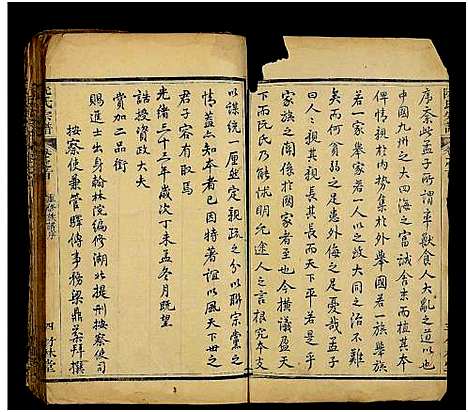 序秦此孟子所謂率獸食人大亂之道以也
中國九州之大四海之富誠舍末而植其本
俾情積於內勢集於外舉國若一族舉族
若一家舉家若一人以之致大同之治不難
矣而何貧弱之足患外侮之足憂哉孟子
曰人人親其親長其長而天下平若是乎
家族之關係於國家者至也今橫議盈天
下而阮氏乃能怵明先途人之言根究本支
以謀統一厘定親疏之分以聯宗黨之
情蓋亦知本者已因特著誼以風天下世之
君子容有取焉
光緒三十三年歲次丁未孟冬月既望
誥授資政大夫
賞加二品銜
賜進士出身翰林院編修湖北提刑按察使司
按察使兼管驛傳事務梁鼎棻拜撰
阮氏宗譜
四 竹林堂